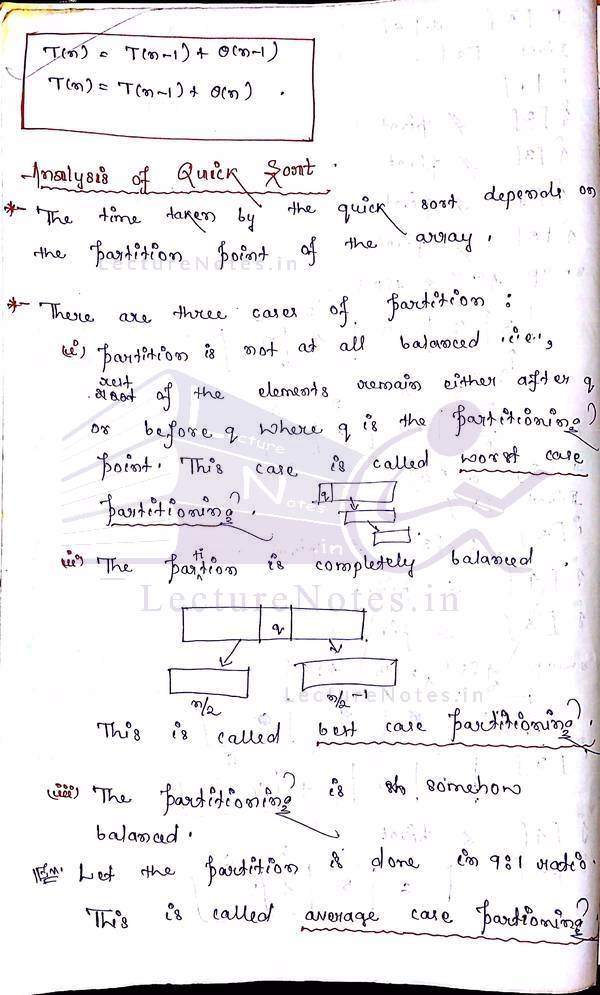 T(n) = T(n-1) + θ(n-1)
T(n) = T(n-1) + θ(n).
Analysis of Quick Sort.
* The time taken by the quick sort depends on
the partition point of the array.
LectureNotes.in
* There are three cases of partition:
(i) partition is not at all balanced i.e.,
rest of the elements remain either after q
or before q where q is the partitioning
point. This case is called worst case
q
partitioning.
Lecture
Notes
.in
(ii) The partition is completely balanced.
LectureNotes.in
q
n/2 n/2 -1
LectureNotes.in
This is called best case partitioning.
(iii) The partitioning is somehow
balanced.
Let the partition is done in 9:1 ratio.
This is called average case partioning